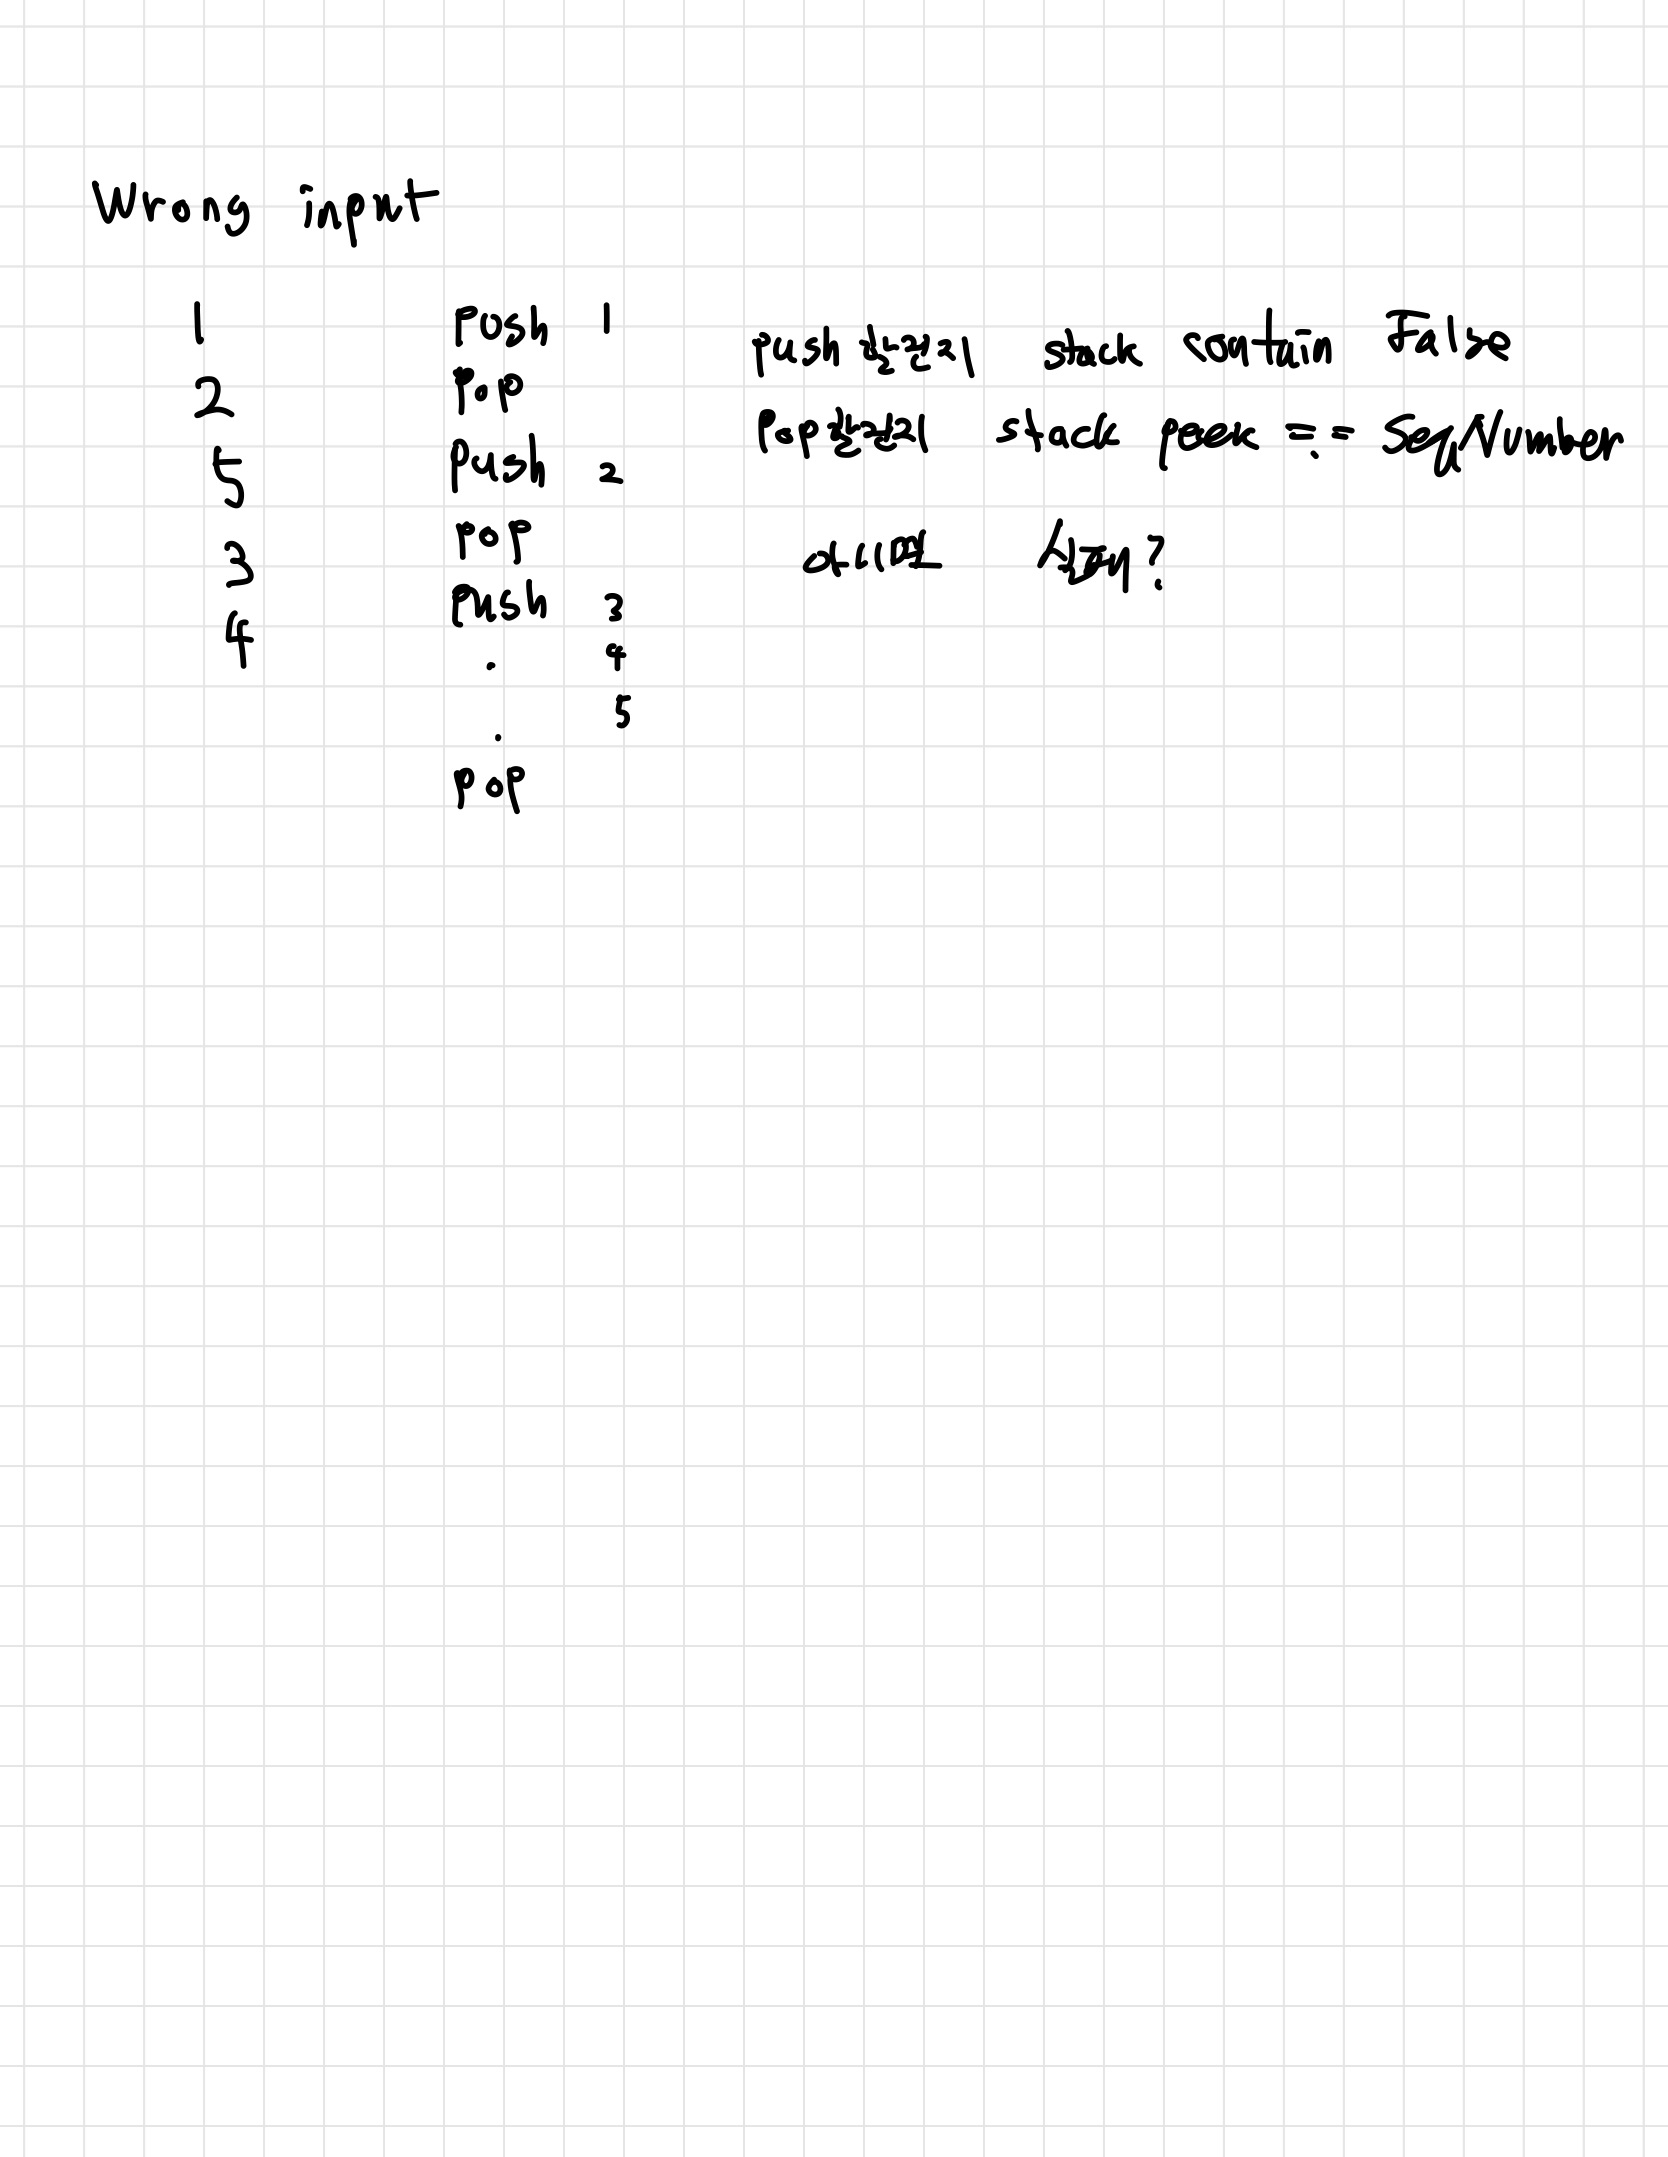 Wrong input
1
2
5
3
4
push 1
pop
push 2
pop
push 3
. 4
. 5
pop
push 할껀지 stack contain False
pop할껀지 stack peek == SeqNumber
아니면 실패?